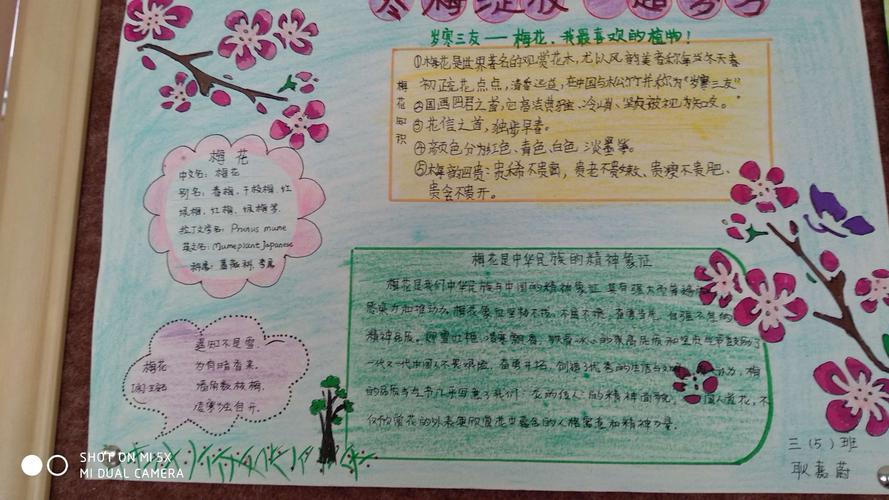 寒梅绽放
岁寒三友——梅花,我最喜欢的植物!
梅花知识
①梅花是世界著名的观赏花木,尤以风韵美者称著当冬天春
初疏花点点,清香远远,在中国与松竹并称为"岁寒三友"
②国画四君之首,它高洁典雅、冷峭、坚贞被视为知友。
③花信之首,独步早春。
④颜色分为红色、青色、白色、淡墨等。
⑤梅韵四贵:贵稀不贵密,贵老不贵嫩、贵瘦不贵肥、
贵含不贵开。
梅花
中文名:梅花
别名:春梅、干枝梅、红
绿梅、红梅、绿梅等.
拉丁文学名:Prunus mume
英文名:Mumeplant Japanese
科属:蔷薇科,李属
梅花是中华民族的精神象征
梅花是我们中华民族与中国的精神象征 具有强大而普遍的
感染力和推动力。梅花象征坚韧不拔,不屈不挠,奋勇当先,自强不息的
精神品质。
一代又一代中国人不畏艰险,奋勇开拓,创造了优秀的生活与文明
的品质与气节几乎
仅欣赏花的外表更欣赏花中蕴含的人格寓意和精神力量.
梅花
[宋]王安石
遥知不是雪.
为有暗香来.
墙角数枝梅,
凌寒独自开.
三(5)班
耿嘉蔚
SHOT ON MI 5X
MI DUAL CAMERA